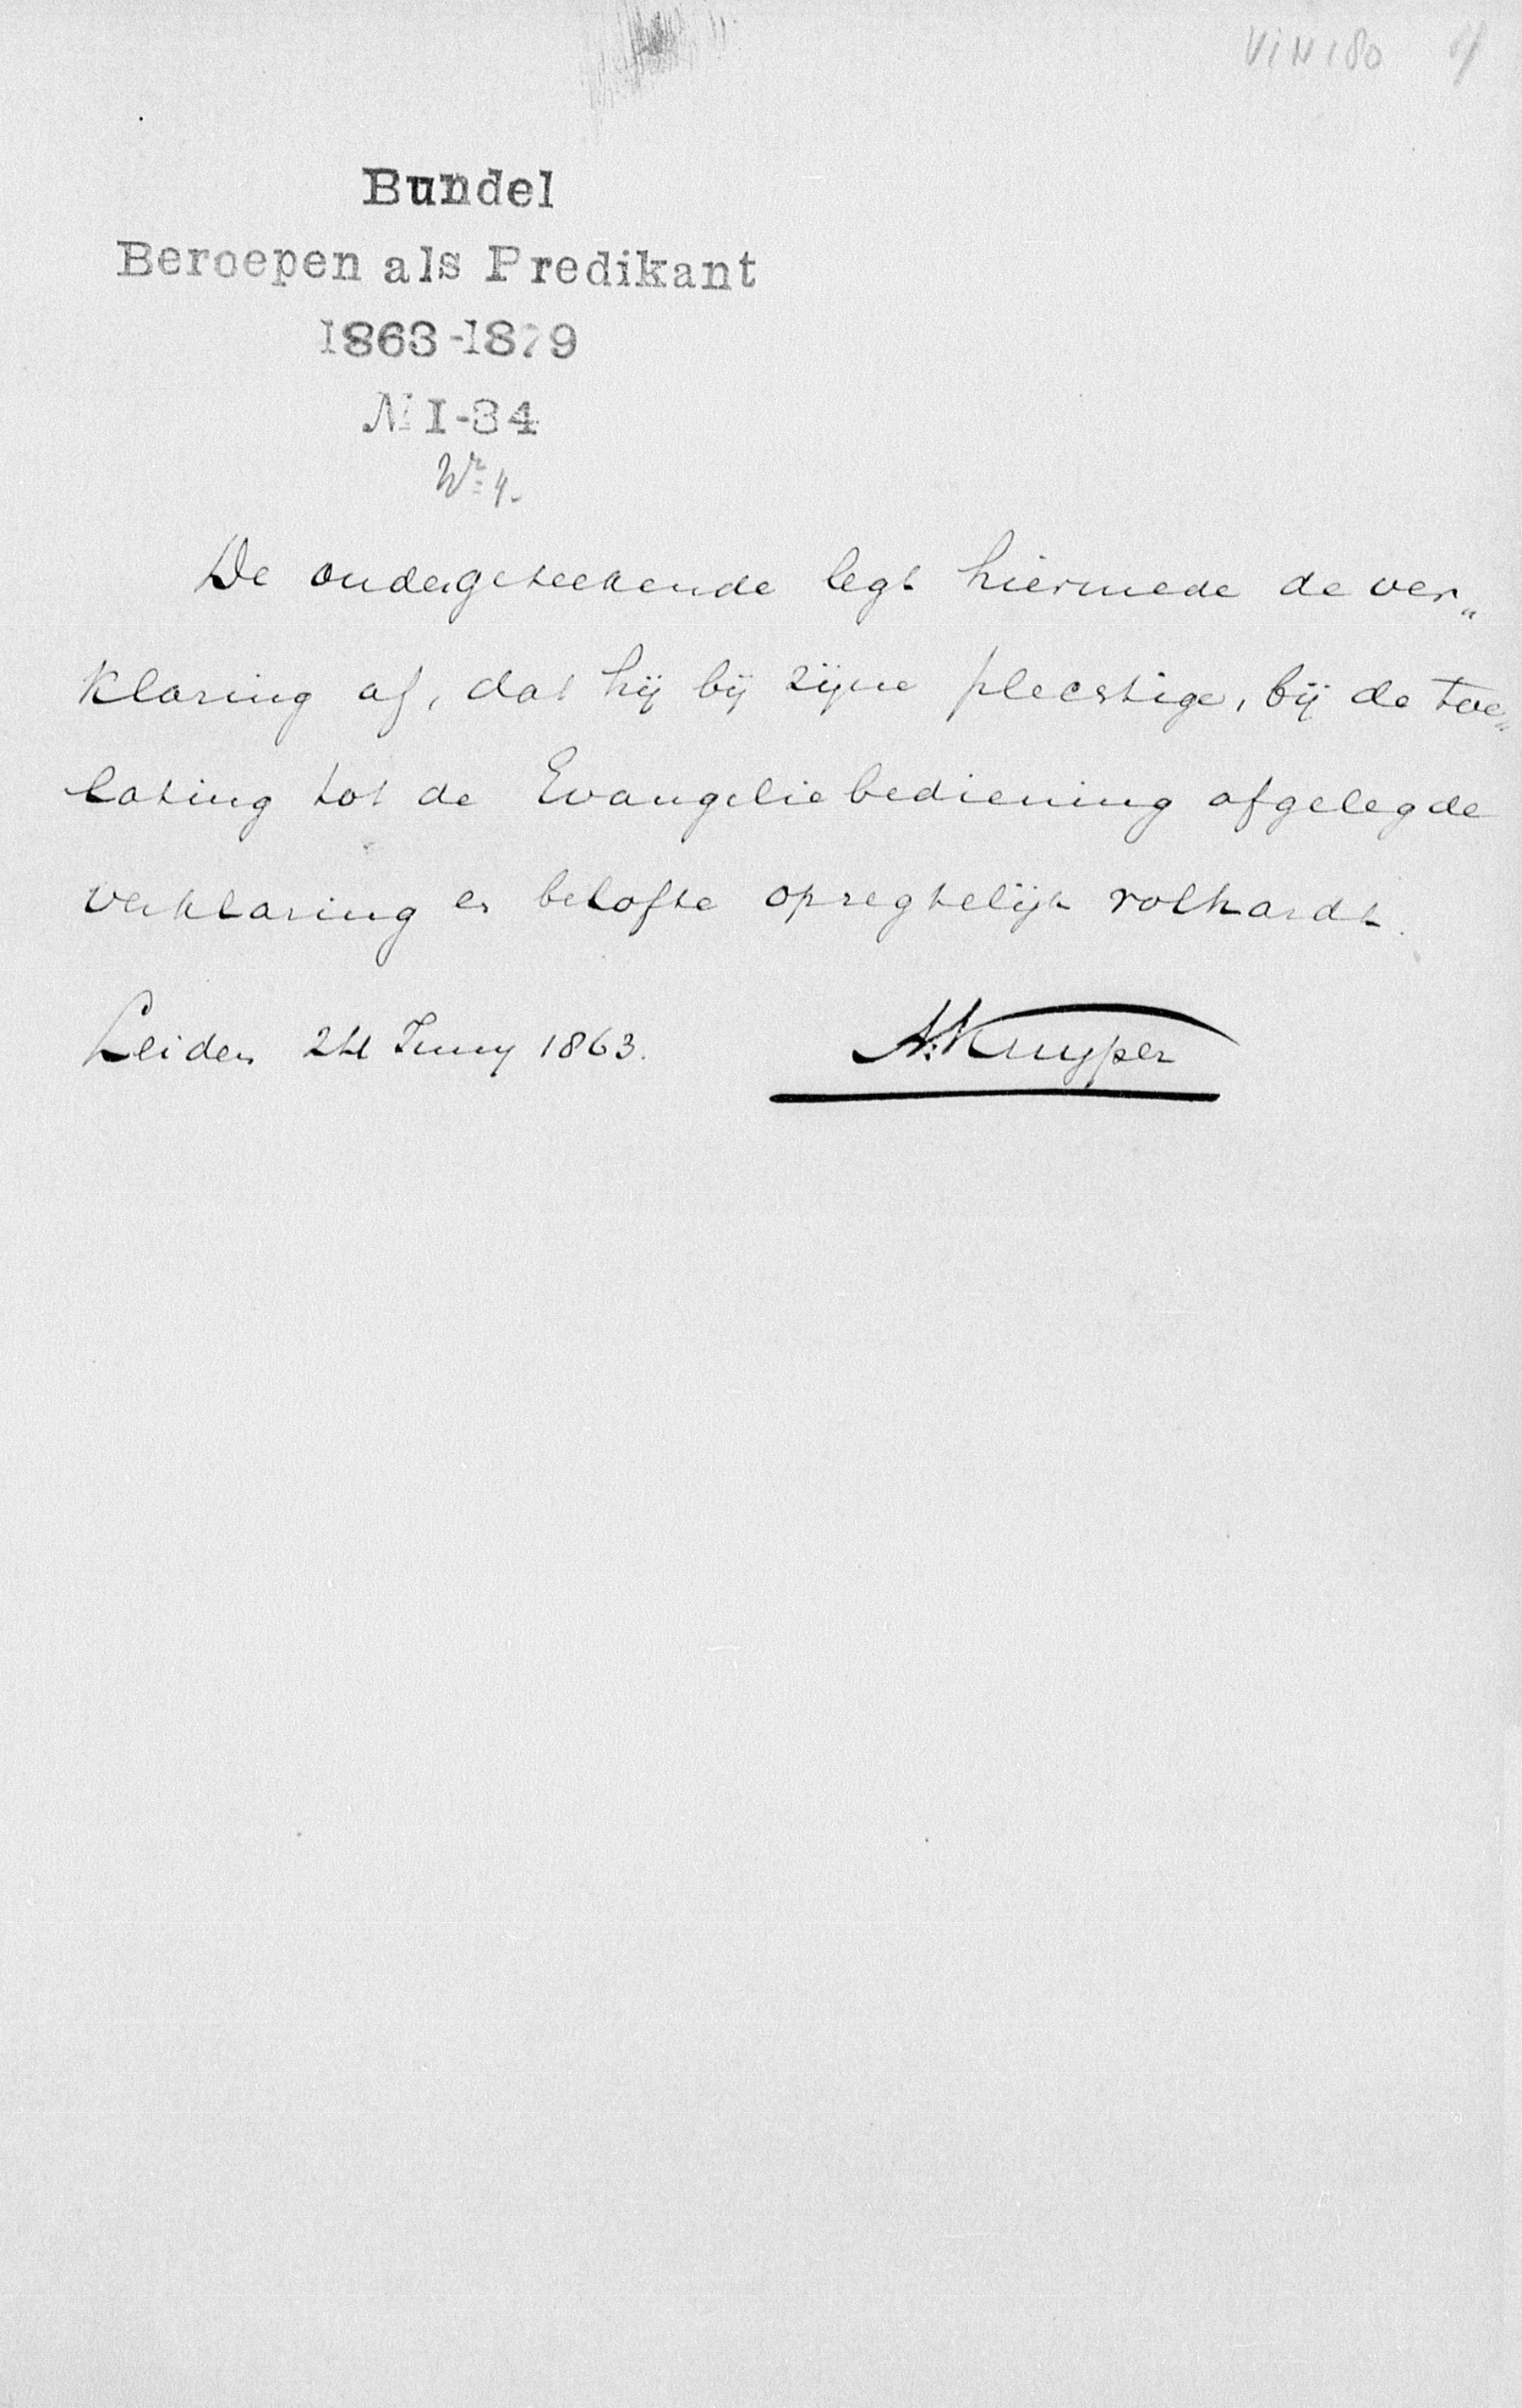 VIN 180 4
Bundel
Beroepen als Predikant
1863-1879
№ I-34
Nr. 4.
De ondergeteekende legt hiermede de ver„
klaring af, dat hij bij zijne plechtige, bij de toe„
lating tot de Evangeliebediening afgelegde
verklaring en belofte opregtelijk volhardt.
Leiden 24 Juny 1863. A. Kuyper